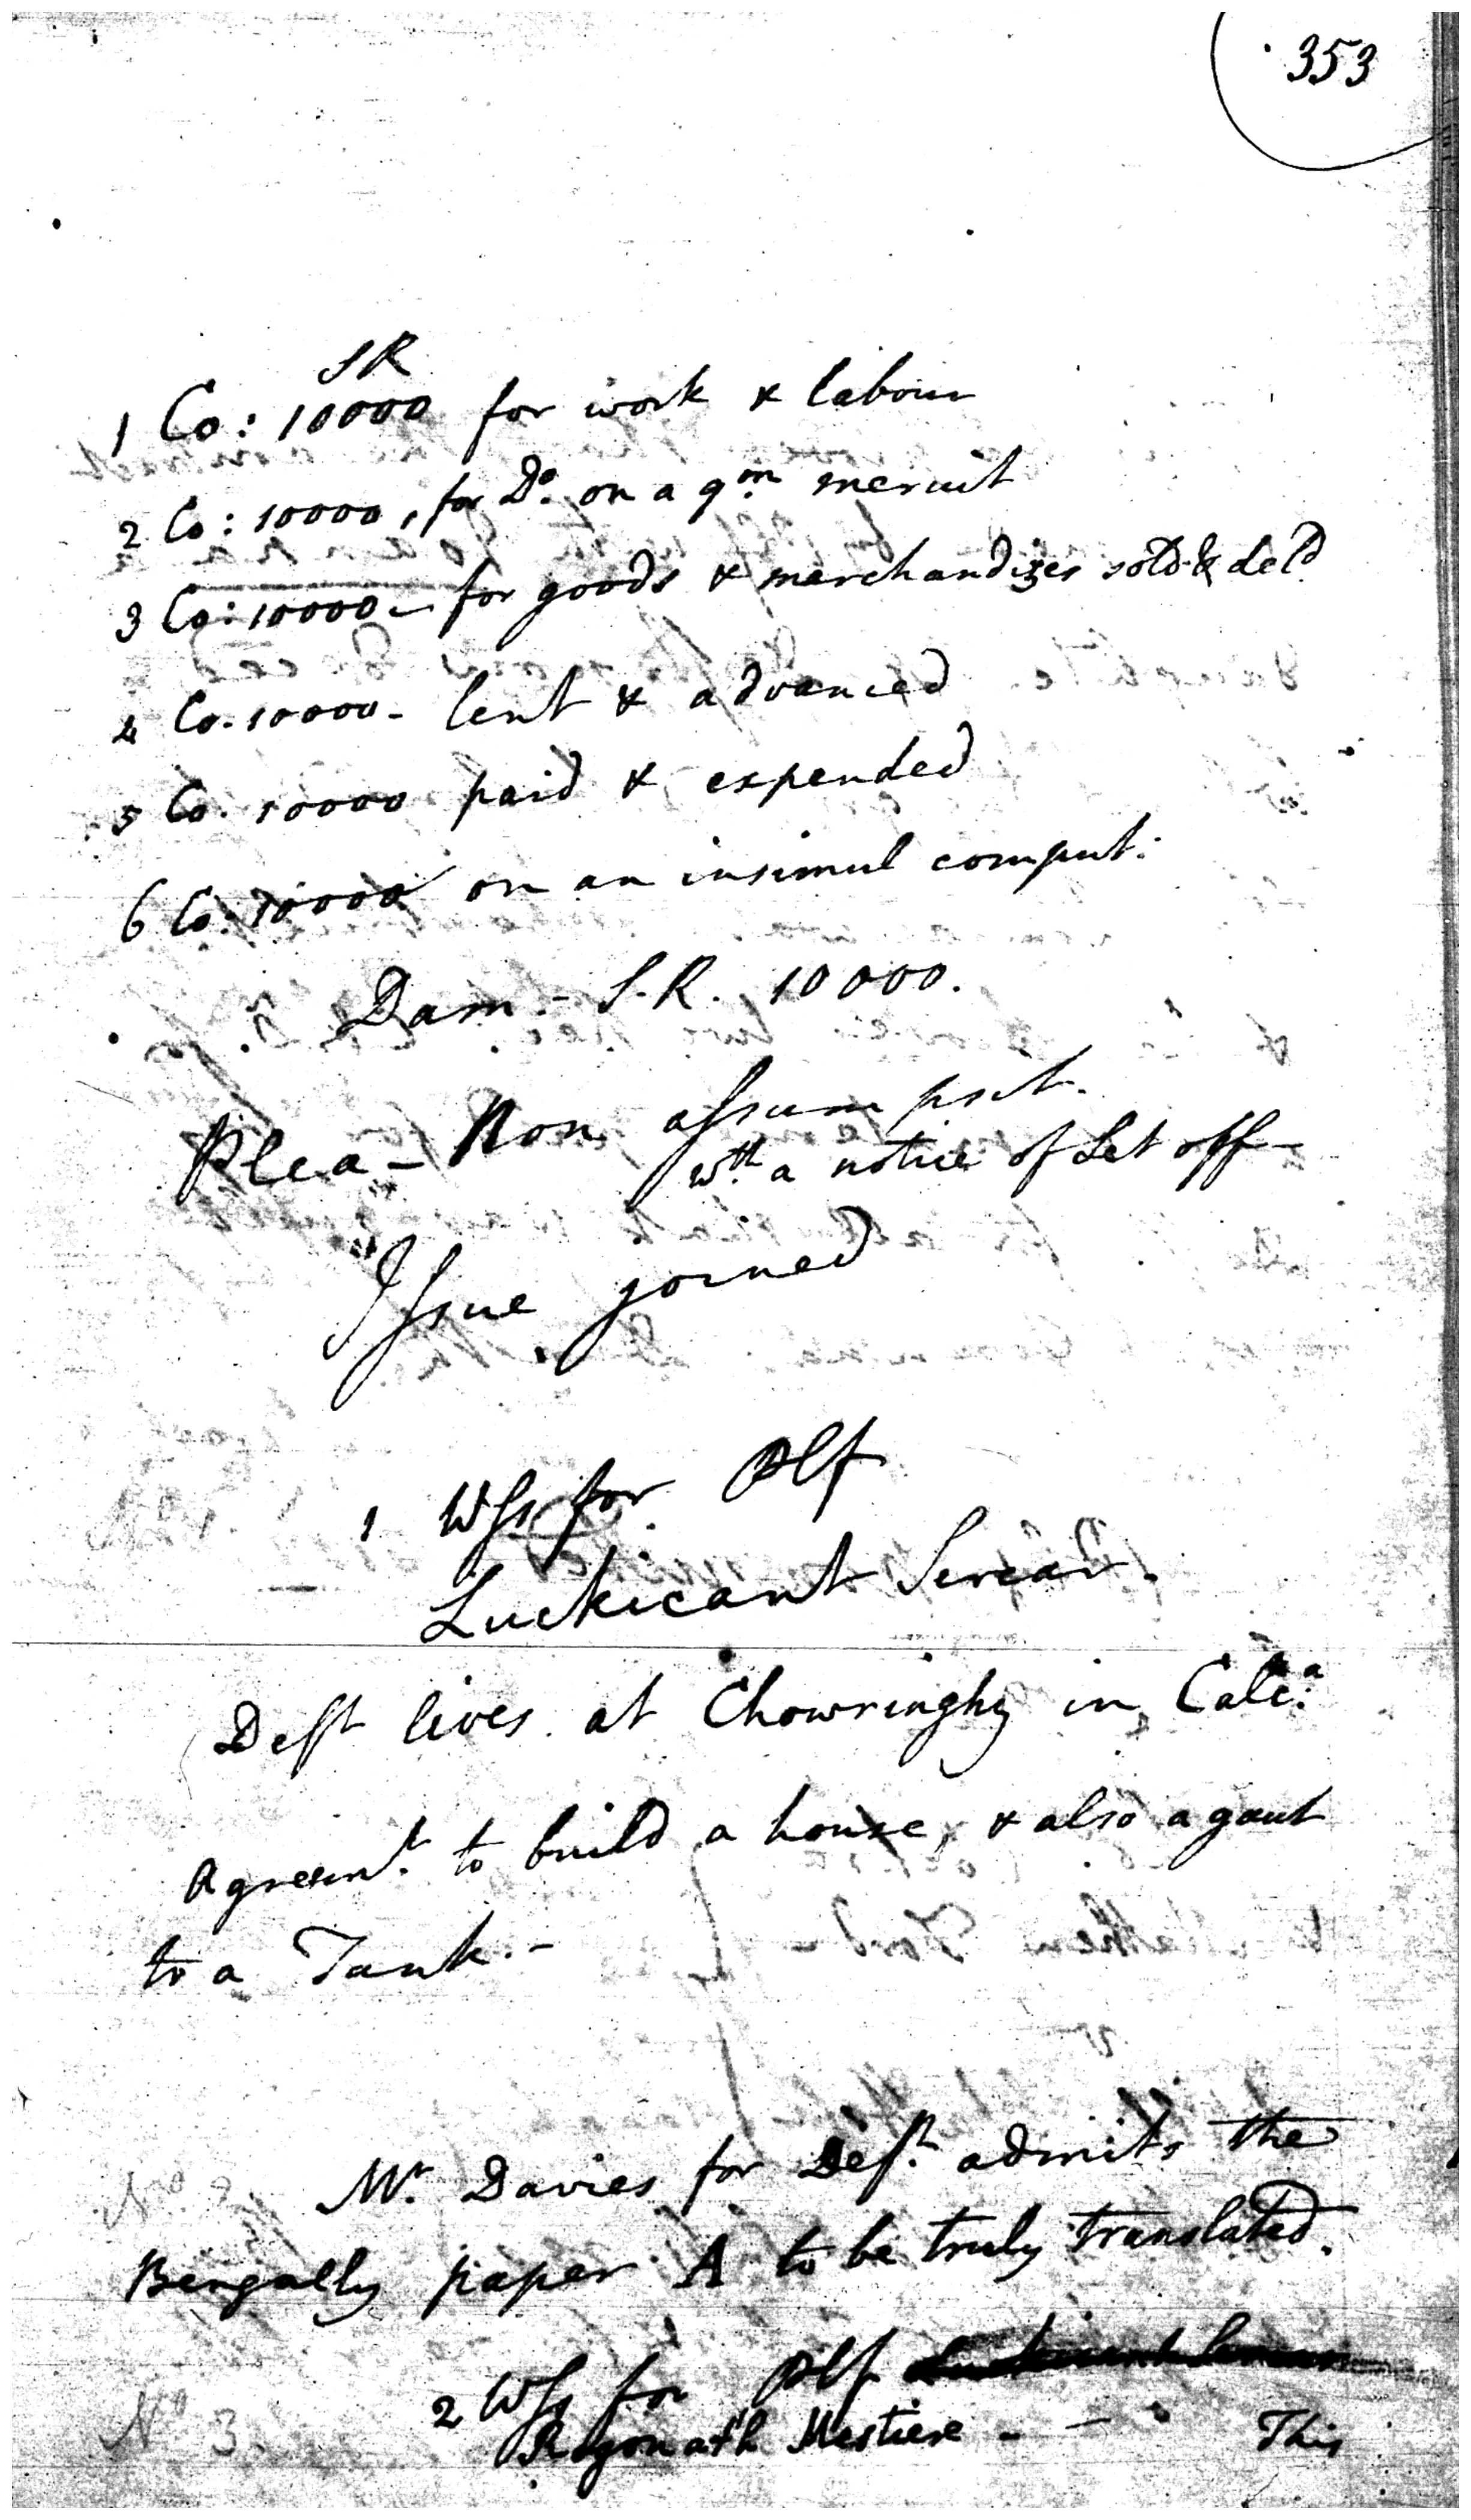 353
SR
1 Co: 10000 for work & labour
2 Co: 10000, for Do. on a qm. meruit
3 Co: 10000 - for goods & merchandizes sold & deld
4 Co. 10000 - lent & advanced
5 Co. 10000 paid & expended
6 Co. 10000 on an insimul comput:
Dam. - S.R. 10000.
Plea - Non assumpsit.
wth. a notice of Set off -
Issue joined
1 Wss for Plf
Luckicant Sercar.
Deft lives at Chowringhy in Calca.
Agreemt. to build a house, & also a gaut
to a Tank. -
Mr. Davies for Deft. admits the
Bengally paper A to be truly translated.
2 Wss for Plf
Rogonath Mestiere - -
This